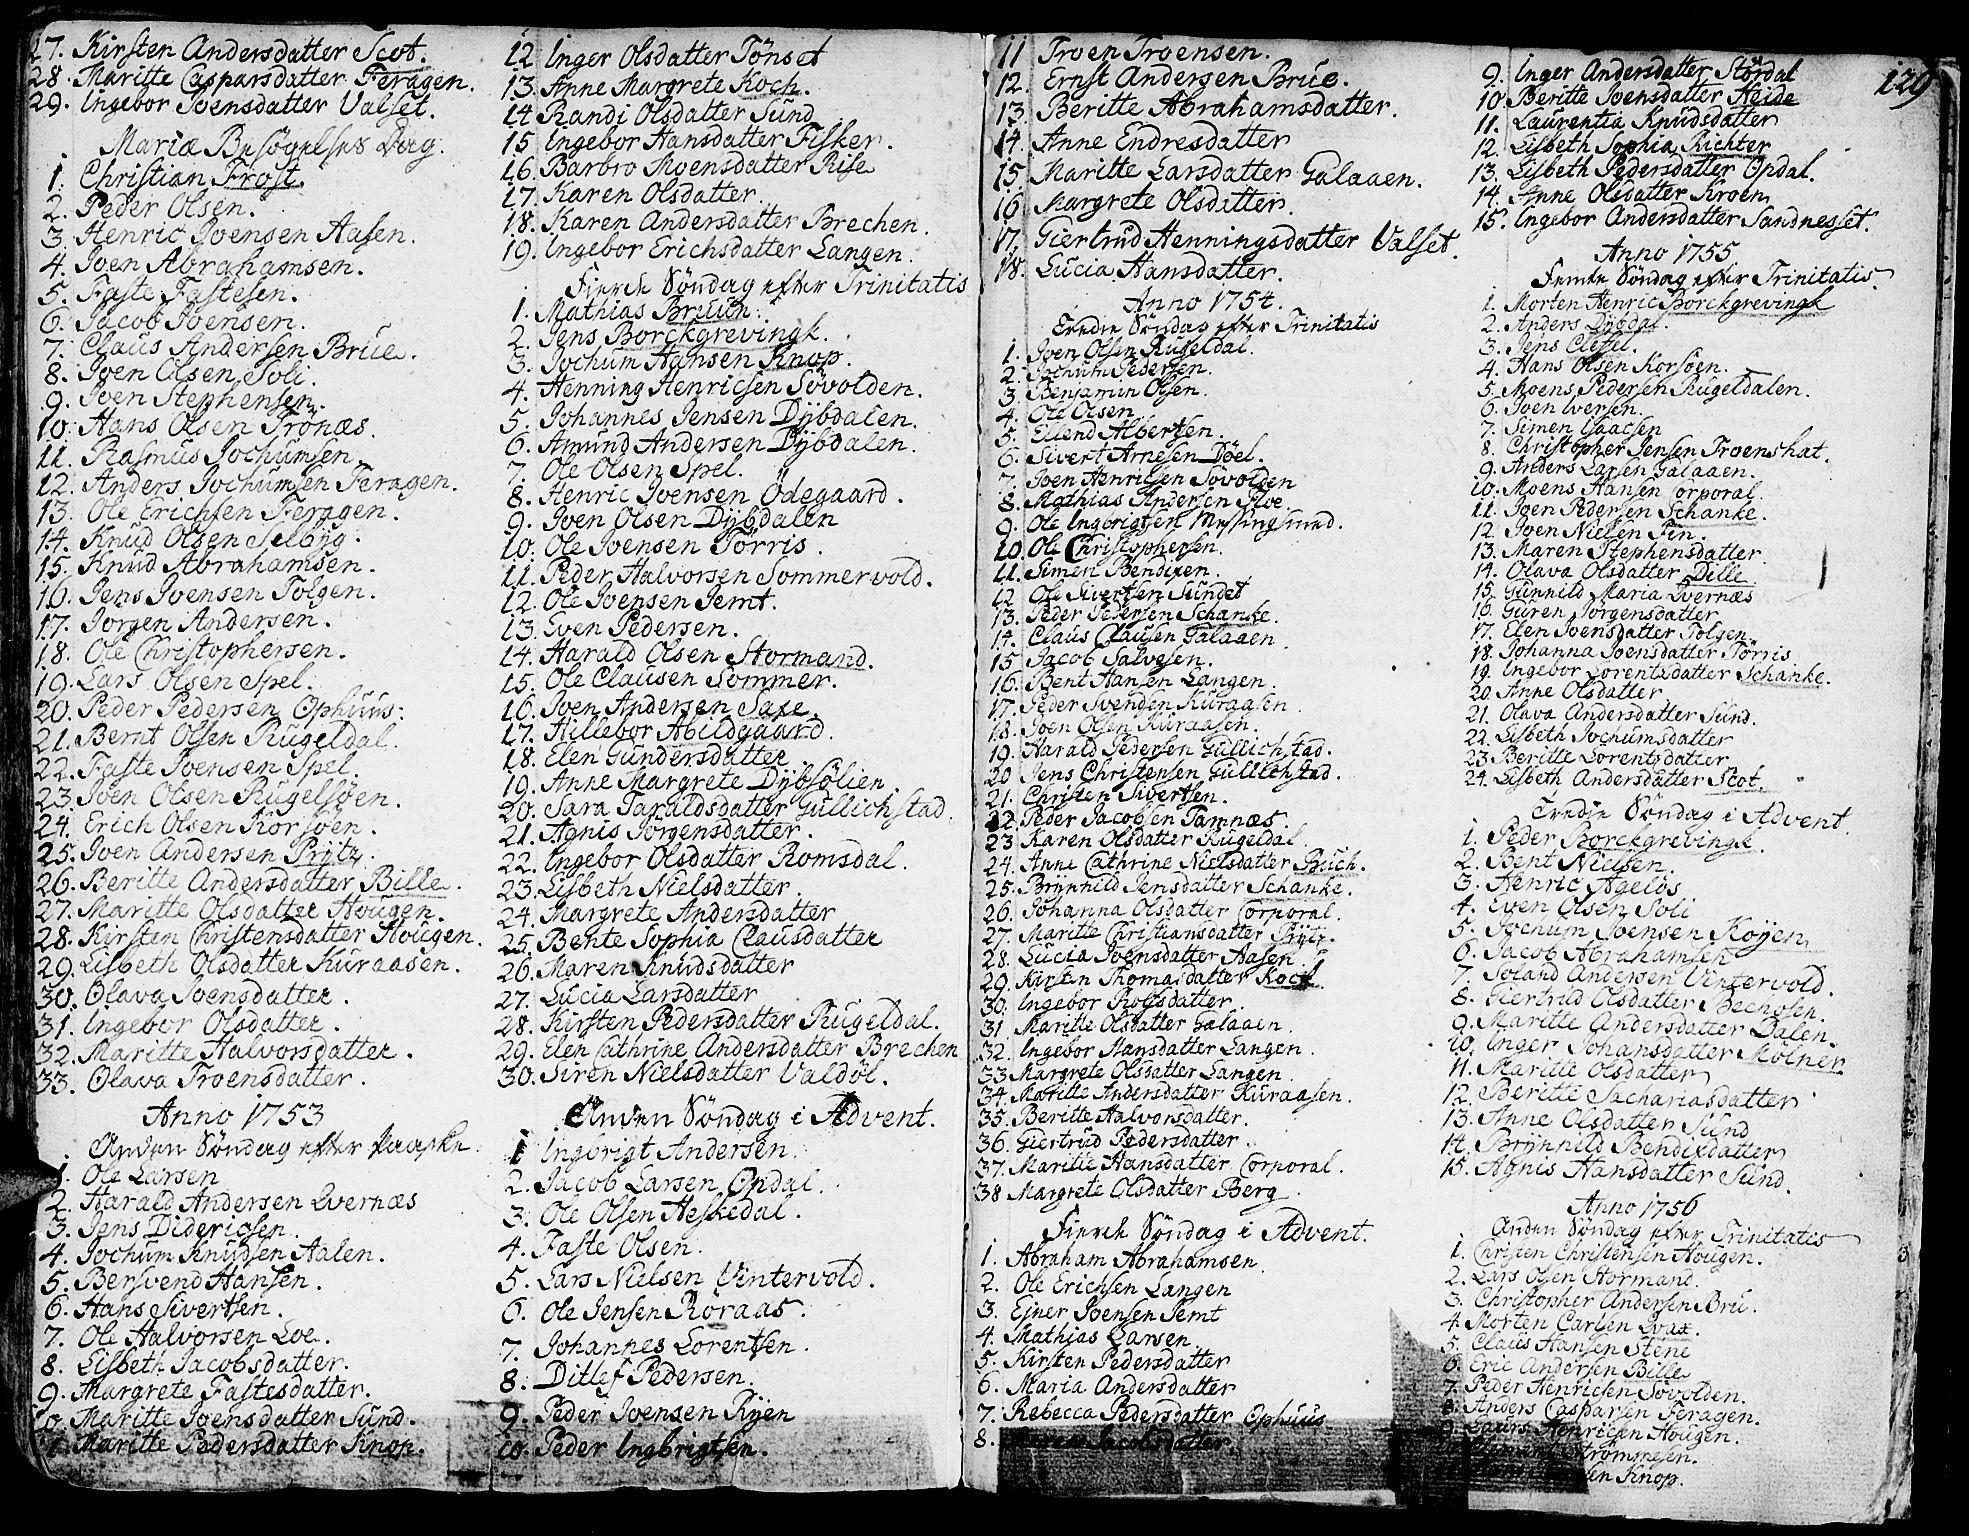 27. Kirsten Andersdatter Scot.
28. Maritte Casparsdatter Feragen.
29. Ingebor Joensdatter Valset.
Mariæ Besøgelses Dag.
1. Christian Frost.
2. Peder Olsen.
3. Henric Joensen Aasen.
4. Joen Abrahamsen.
5. Faste Fastesen.
6. Jacob Joensen.
7. Claus Andersen Brue.
8. Joen Olsen Soli.
9. Joen Stephensen.
10. Hans Olsen Trönæs.
11. Rasmus Jochumsen
12. Anders Jochumsen Feragen.
13. Ole Erichsen Feragen.
14. Knud Olsen Selbyg.
15. Knud Abrahamsen.
16. Jens Joensen Tolgen.
17. Jörgen Andersen.
18. Ole Christophersen.
19. Lars Olsen Spel.
20. Peder Pedersen Ophuus.
21. Bernt Olsen Rugeldal.
22. Faste Joensen Spel.
23. Joen Olsen Rugelsjöen.
24. Erich Olsen Korsöen.
25. Joen Andersen Prytz.
26. Beritte Andersdatter Bille.
27. Maritte Olsdatter Hougen.
28. Kirsten Christensdatter Hougen.
29. Lisbeth Olsdatter Kuraasen.
30. Olava Joensdatter.
31. Ingebor Olsdatter.
32. Maritte Halvorsdatter.
33. Olava Troensdatter.
Anno 1753
Anden Söndag efter Paaske.
1. Ole Larsen
2. Harald Andersen Qvernæs
3. Jens Diderigsen.
4. Jochum Knudsen Aalen.
5. Bersvend Hansen.
6. Hans Sivertsen.
7. Ole Halvorsen Loe.
8. Lisbeth Jacobsdatter.
9. Margrete Fastesdatter.
10. Maritte Joensdatter Sund.
11. Maritte Pedersdatter Knop.
12 Inger Olsdatter Tönset
13. Anne Margrete Koch.
14 Randi Olsdatter Sund
15 Ingebor Hansdatter Fisker.
16. Barbro Moensdatter Rise
17. Karen Olsdatter
18. Karen Andersdatter Brechen.
19. Ingebor Erichsdatter Langen.
Fierde Söndag efter Trinitatis
1. Mathias Bruun.
2. Jens Borckgrevingk.
3. Jochum Hansen Knop.
4. Henning Henricsen Sövolden.
5. Johannes Jensen Dybdalen.
6. Amund Andersen Dybdalen.
7. Ole Olsen Spel.
8. Henric Joensen Ödegaard.
9. Joen Olsen Dybdalen
10. Ole Joensen Törris.
11. Peder Halvorsen Sommervold.
12. Ole Joensen Jemt.
13. Even Pedersen.
14. Harald Olsen Stormand.
15. Ole Clausen Sommer.
16. Joen Andersen Saxe.
17. Hillebor Abildgaard.
18. Elen Gundersdatter
19. Anne Margrete Dybsölien.
20. Sara Taraldsdatter Gullichstad.
21. Agnis Jörgensdatter.
22. Ingebor Olsdatter Romsdal.
23. Lisbeth Nielsdatter.
24. Margrete Andersdatter
25. Bente Sophia Clausdatter
26. Maren Knudsdatter
27. Lucia Larsdatter
28. Kirsten Pedersdatter Rugeldal.
29. Elen Cathrine Andersdatter Brechen
30. Siren Nielsdatter Valdöl.
Anden Söndag i Advent.
1 Ingbrigt Andersen.
2. Jacob Larsen Opdal.
3. Ole Olsen Heskedal.
4. Faste Olsen.
5. Lars Nielsen Vintervold.
6. Ole Jensen Röraas.
7. Johannes Lorentsen.
8. Ditlef Pedersen.
9. Peder Joensen Ryen
10. Peder Ingbrigtsen.
11 Troen Troensen.
12. Ernst Andersen Brue.
13. Beritte Abrahamsdatter.
14. Anne Endresdatter
15. Maritte Larsdatter Galaaen.
16. Margrete Olsdatter.
17. Giertrud Henningsdatter Valset.
18. Lucia Hansdatter.
Anno 1754.
Tredie Söndag efter Trinitatis
1. Joen Olsen Rugeldal.
2. Jochum Pedersen.
3. Benjamin Olsen.
4. Ole Olsen
5. Ellend Albertsen.
6. Sivert Arnesen Döel.
7. Joen Henricsen Sövolden
8. Mathias Andersen Floe.
9. Ole Ingbrigtsen Messingsmed.
10. Ole Christophersen.
11. Simen Bendixen.
12 Ole Sivertsen Sundet
13. Peder Pedersen Schanke.
14. Claus Clausen Galaaen
15 Jacob Salvesen.
16. Bent Hansen Langen.
17. Peder Svendsen Kuraasen.
18. Joen Olsen Kuraasen.
19. Harald Pedersen Gullichstad.
20 Jens Christensen Gullichstad.
21. Christen Sivertsen.
22. Peder Jacobsen Tamnæs.
23 Karen Olsdatter Rugeldal.
24. Anne Cathrine Nielsdatter Buch.
25. Brynhild Jensdatter Schanke.
26. Johanna Olsdatter Corporal.
27. Maritte Christiansdatter Prytz.
28. Lucia Joensdatter Aasen.
29. Kirsten Thomasdatter Koch.
30. Ingebor Rolfsdatter.
31 Maritte Olsdatter Galaaen.
32. Ingebor Hansdatter Langen.
33 Margrete Olsdatter Langen
34. Maritte Andersdatter Kuraasen.
35. Beritte Halvorsdatter.
36. Giertrud Pedersdatter.
37. Maritte Hansdatter Corporal.
38 Margrete Olsdatter Berg
Fierde Söndag i Advent.
1. Abraham Abrahamsen
2. Ole Erichsen Langen
3. Ejner Joensen Jemt
4. Mathias Larsen
5. Kirsten Pedersdatter
6. Maria Andersdatter
7. Rebecca Pedersdatter Ophuus
8. Jacobsdatter.
129
9. Inger Andersdatter Stördal
10 Beritte Joensdatter Heide
11. Laurentia Knudsdatter
12. Lisbeth Sophia Richter
13. Lisbeth Pedersdatter Opdal.
14. Anne Olsdatter Kroen
15. Ingebor Andersdatter Sandnesset.
Anno 1755
Femte Söndag efter Trinitatis.
1. Morten Henric Borckgrevingk
2. Anders Dybdal.
3. Jens Clefel.
4. Hans Olsen Korsöen.
5. Moens Pedersen Rugeldalen.
6. Joen Iversen.
7. Simen Isaacsen
8. Christopher Jensen Troenshat.
9. Anders Larsen Galaaen.
10. Moens Hansen Corporal.
11. Joen Pedersen Schanke.
12. Joen Nielsen Fin.
13. Maren Stephensdatter
14. Olava Olsdatter Dille
15. Gunnild Maria Qvernæs
16. Guren Jörgensdatter
17. Elen Joensdatter Tolgen
18. Johanna Joensdatter Törris
19. Ingebor Lorentzdatter Schanke.
20. Anne Olsdatter
21. Olava Andersdatter Sund.
22. Lisbeth Jochumsdatter
23 Beritte Lorentsdatter
24. Lisbeth Andersdatter Scot.
Tredie Söndag i Advent
1. Peder Borckgrevingk.
2. Bent Nielsen.
3. Henric Agelös
4. Even Olsen Soli
5. Jochum Joensen Kojen
6. Jacob Abrahamsen
7. Joland Andersen Vintervold.
8. Giertrud Olsdatter Bechosen.
9. Maritte Andersdatter Dalen.
10. Inger Johansdatter Molner.
11. Maritte Olsdatter
12. Beritte Sachariasdatter
13. Anne Olsdatter Sund
14. Brynnild Bendixdatter
15. Agnis Hansdatter Sund.
Anno 1756
Anden Söndag efter Trinitatis
1. Christen Christensen Hougen.
2. Lars Olsen Stormand.
3. Christopher Andersen Bru.
4. Morten Carlsen Qvæt.
5. Claus Hansen Stene
6. Eric Andersen Bille
7. Peder Henricsen Sövolden.
8. Anders Caspersen Feragen.
9. Laurs Henricsen Hougen.
Strömmesen.
Knop.